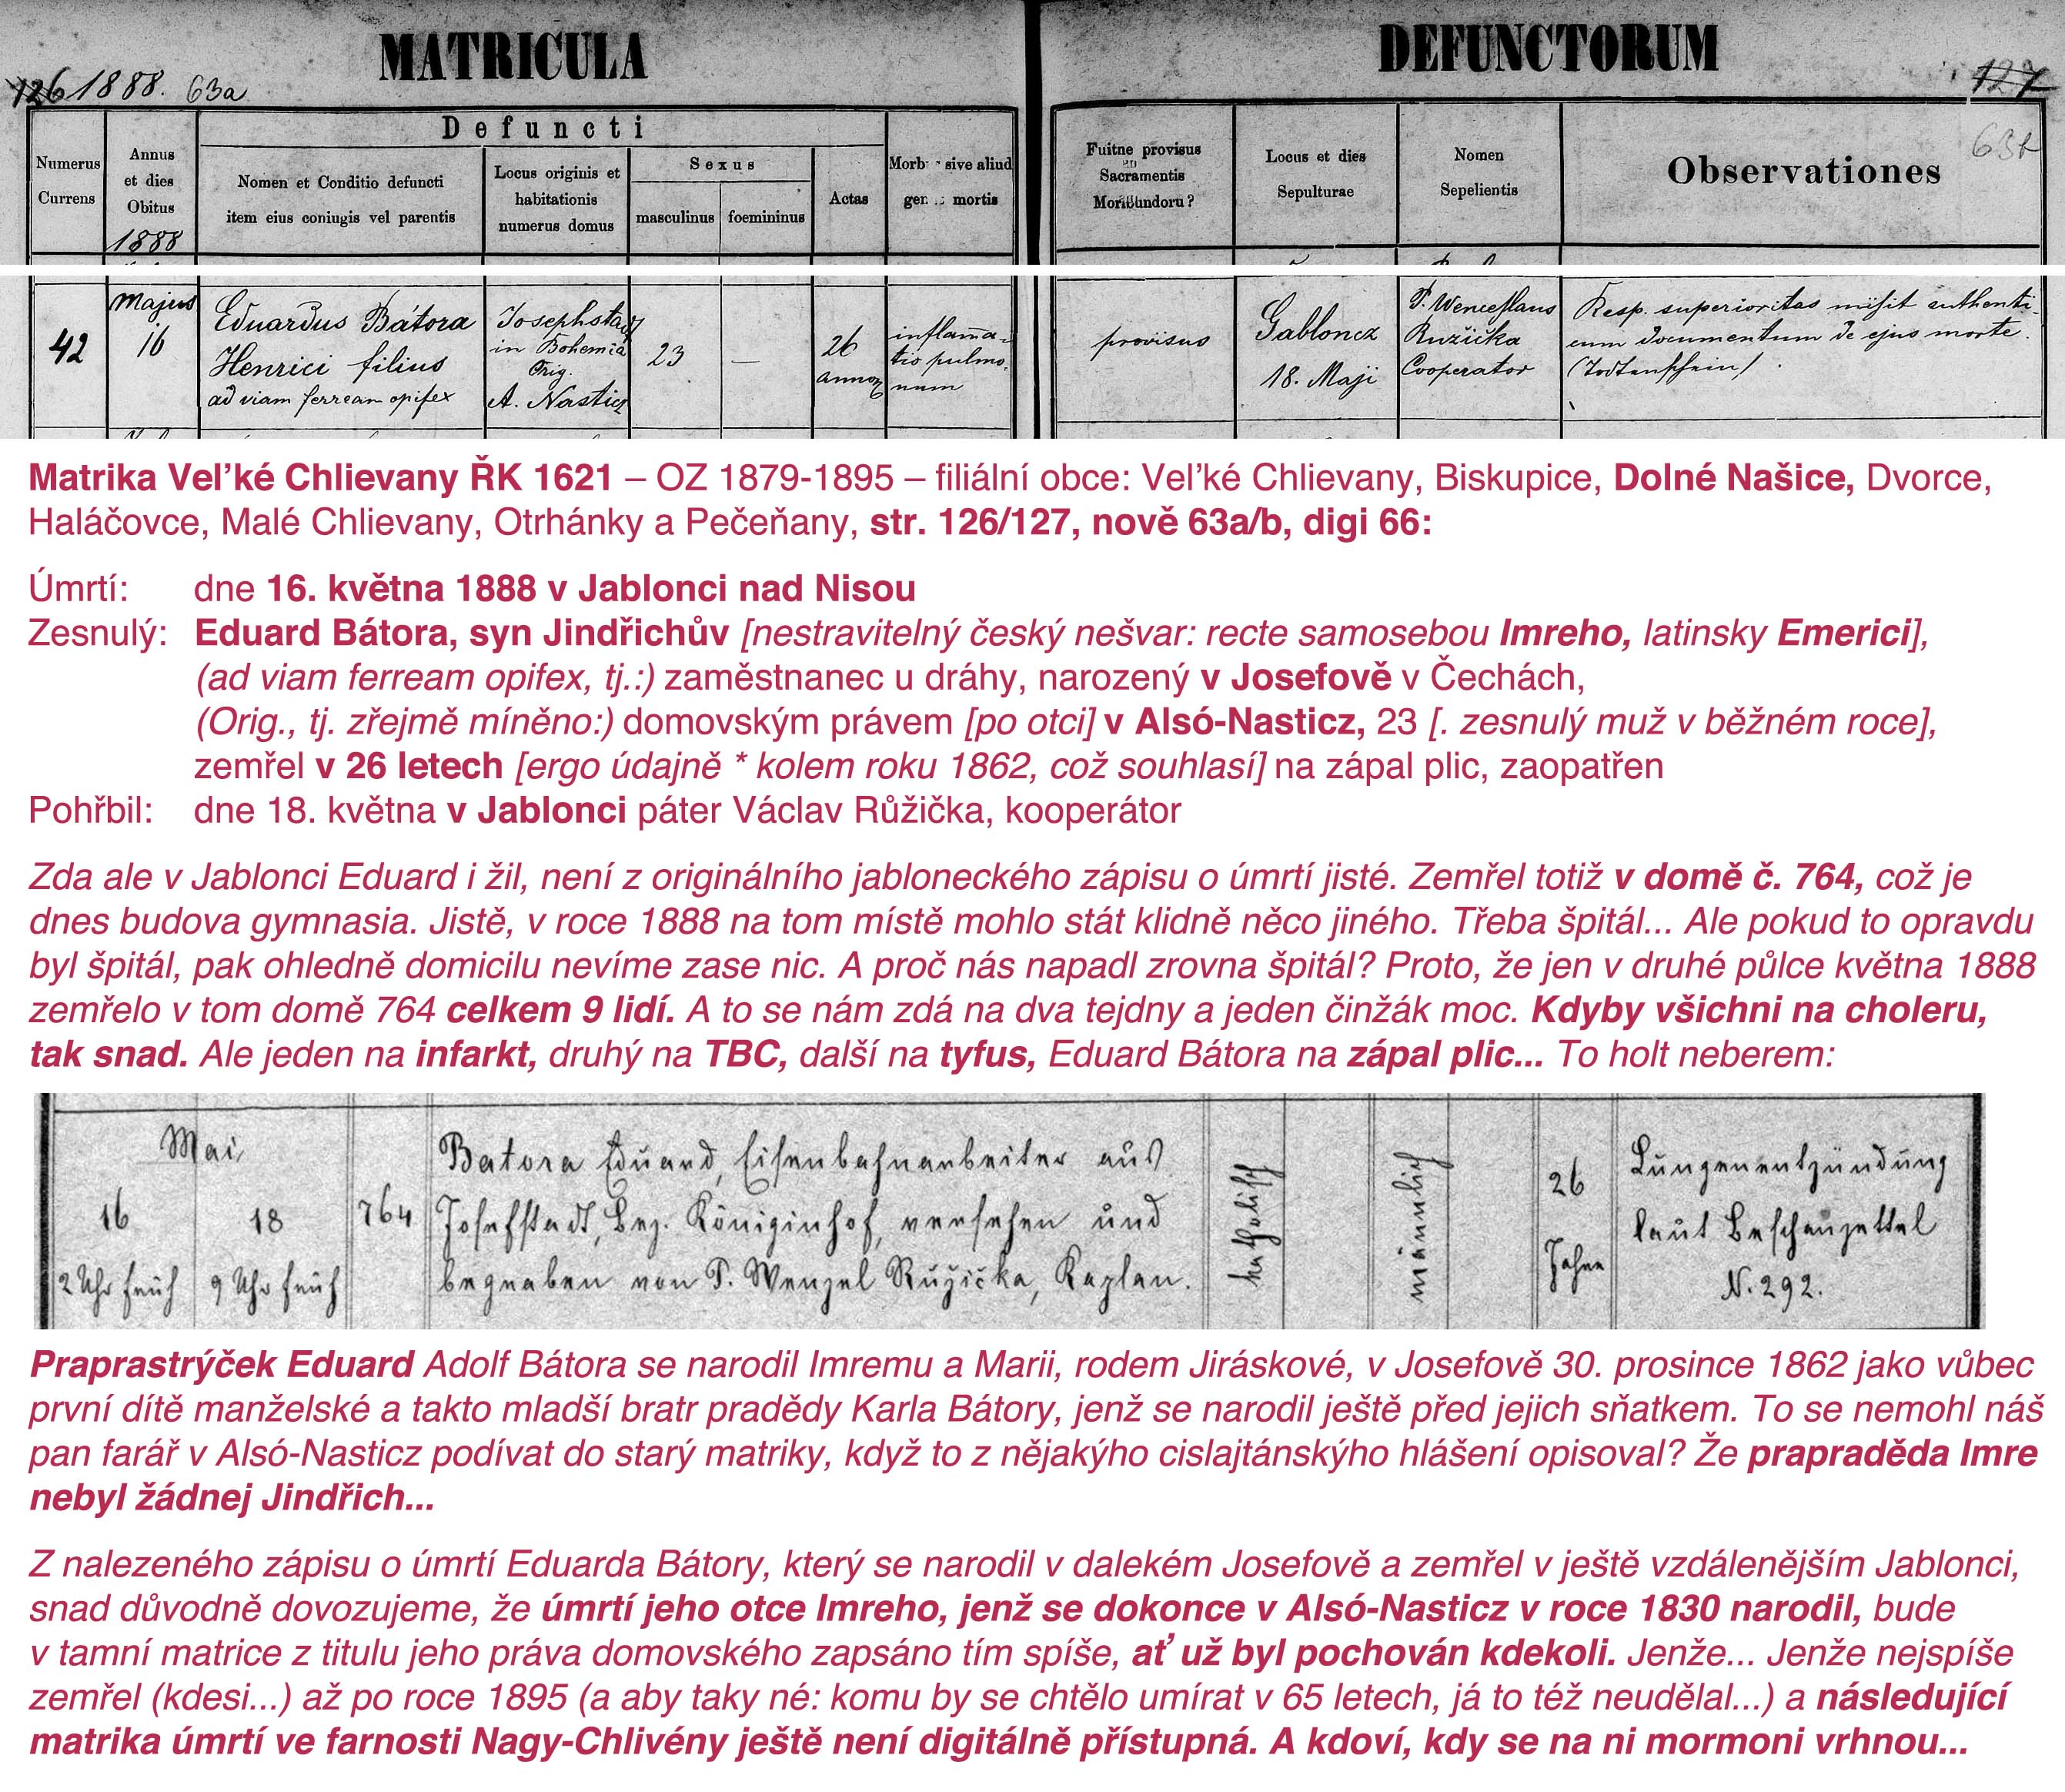 MATRICULA DEFUNCTORUM
126 1888. 63a 127
63b
Defuncti
Numerus Currens
Annus et dies Obitus 1888
Nomen et Conditio defuncti item eius coniugis vel parentis
Locus originis et habitationis numerus domus
Sexus
masculinus foemininus
Aetas
Morb sive aliud gen mortis
Fuitne provisus an Sacramentis Moribundoru?
Locus et dies Sepulturae
Nomen Sepelientis
Observationes
42
Majus
16
Eduardus Bátora
Henrici filius
ad viam ferream opifex
Josephstadt
in Bohemia
Orig.
A. Nasticz
23
—
26
annor
inflama=
tio pulmo-
num
provisus
Gabloncz
18. Maji
P. Wenceslaus
Ružička
Cooperator
Resp. superioritas misit authenti-
cum documentum de ejus morte.
(Todtenschein)
Matrika Vel’ké Chlievany ŘK 1621 – OZ 1879-1895 – filiální obce: Vel’ké Chlievany, Biskupice, Dolné Našice, Dvorce,
Haláčovce, Malé Chlievany, Otrhánky a Pečeňany, str. 126/127, nově 63a/b, digi 66:
Úmrtí: dne 16. května 1888 v Jablonci nad Nisou
Zesnulý: Eduard Bátora, syn Jindřichův [nestravitelný český nešvar: recte samosebou Imreho, latinsky Emerici],
(ad viam ferream opifex, tj.:) zaměstnanec u dráhy, narozený v Josefově v Čechách,
(Orig., tj. zřejmě míněno:) domovským právem [po otci] v Alsó-Nasticz, 23 [. zesnulý muž v běžném roce],
zemřel v 26 letech [ergo údajně * kolem roku 1862, což souhlasí] na zápal plic, zaopatřen
Pohřbil: dne 18. května v Jablonci páter Václav Růžička, kooperátor
Zda ale v Jablonci Eduard i žil, není z originálního jabloneckého zápisu o úmrtí jisté. Zemřel totiž v domě č. 764, což je
dnes budova gymnasia. Jistě, v roce 1888 na tom místě mohlo stát klidně něco jiného. Třeba špitál... Ale pokud to opravdu
byl špitál, pak ohledně domicilu nevíme zase nic. A proč nás napadl zrovna špitál? Proto, že jen v druhé půlce května 1888
zemřelo v tom domě 764 celkem 9 lidí. A to se nám zdá na dva tejdny a jeden činžák moc. Kdyby všichni na choleru,
tak snad. Ale jeden na infarkt, druhý na TBC, další na tyfus, Eduard Bátora na zápal plic... To holt neberem:
Mai
16
2 Uhr früh
18
9 Uhr früh
764
Batora Eduard, Eisenbahnarbeiter aus
Josefstadt, Bez. Königinhof, versehen und
begraben von P. WenzelRužička, Kaplan.
katholisch
männlich
26
Jahre
Lungenentzündung
laut Beschauzettel
N. 292.
Praprastrýček Eduard Adolf Bátora se narodil Imremu a Marii, rodem Jiráskové, v Josefově 30. prosince 1862 jako vůbec
první dítě manželské a takto mladší bratr pradědy Karla Bátory, jenž se narodil ještě před jejich sňatkem. To se nemohl náš
pan farář v Alsó-Nasticz podívat do starý matriky, když to z nějakýho cislajtánskýho hlášení opisoval? Že prapraděda Imre
nebyl žádnej Jindřich...
Z nalezeného zápisu o úmrtí Eduarda Bátory, který se narodil v dalekém Josefově a zemřel v ještě vzdálenějším Jablonci,
snad důvodně dovozujeme, že úmrtí jeho otce Imreho, jenž se dokonce v Alsó-Nasticz v roce 1830 narodil, bude
v tamní matrice z titulu jeho práva domovského zapsáno tím spíše, ať už byl pochován kdekoli. Jenže... Jenže nejspíše
zemřel (kdesi...) až po roce 1895 (a aby taky né: komu by se chtělo umírat v 65 letech, já to též neudělal...) a následující
matrika úmrtí ve farnosti Nagy-Chlivény ještě není digitálně přístupná. A kdoví, kdy se na ni mormoni vrhnou...